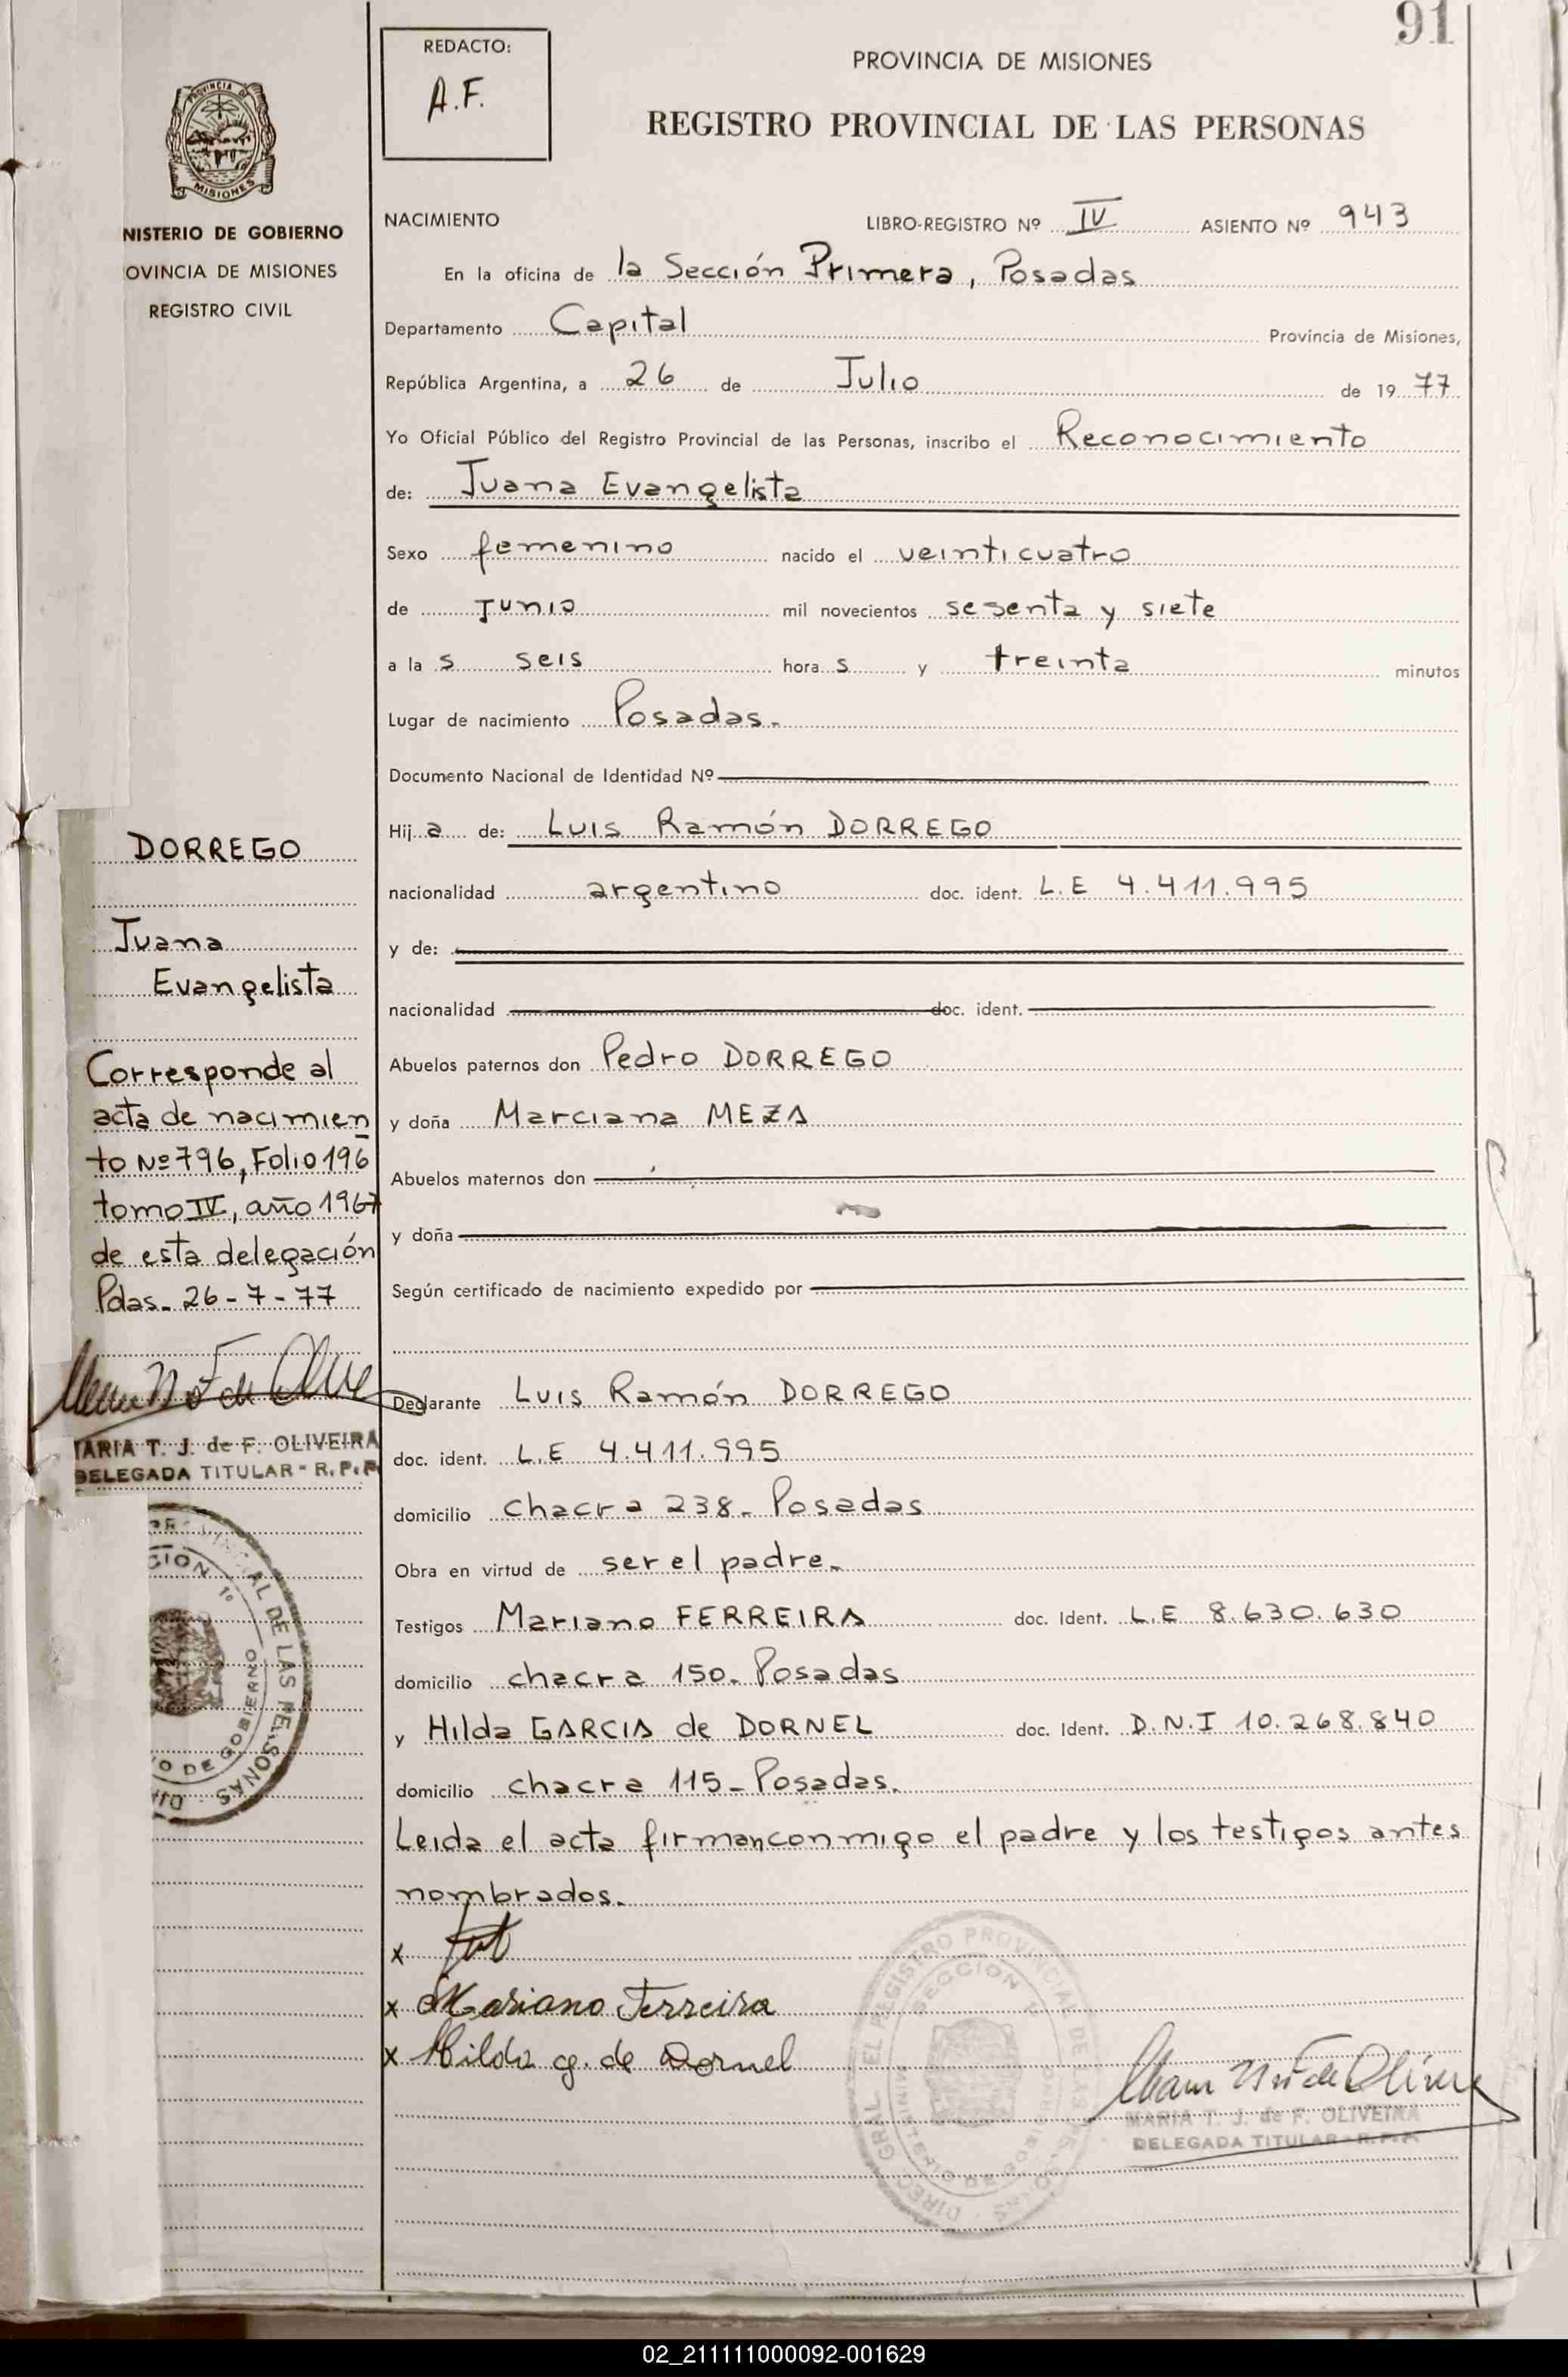 91
REDACTO:
A.F.
PROVINCIA DE MISIONES
REGISTRO PROVINCIAL DE LAS PERSONAS
PROVINCIA DE
MISIONES
NISTERIO DE GOBIERNO
OVINCIA DE MISIONES
REGISTRO CIVIL
NACIMIENTO LIBRO-REGISTRO Nº IV ASIENTO Nº 943
En la oficina de la Sección Primera, Posadas
Departamento Capital Provincia de Misiones,
República Argentina, a 26 de Julio de 1977
Yo Oficial Público del Registro Provincial de las Personas, inscribo el Reconocimiento
de: Juana Evangelista
Sexo femenino nacido el veinticuatro
de junio mil novecientos sesenta y siete
a la s seis hora s y treinta minutos
Lugar de nacimiento Posadas.
Documento Nacional de Identidad Nº
Hij a de: Luis Ramón DORREGO
nacionalidad argentino doc. ident. L.E 4.411.995
y de:
nacionalidad doc. ident.
Abuelos paternos don Pedro DORREGO
y doña Marciana MEZA
Abuelos maternos don
y doña
Según certificado de nacimiento expedido por
Declarante Luis Ramón DORREGO
doc. ident. L.E 4.411.995
domicilio chacra 238- Posadas
Obra en virtud de ser el padre.
Testigos Mariano FERREIRA doc. Ident. L.E 8.630.630
domicilio chacra 150. Posadas
y Hilda GARCIA de DORNEL doc. Ident. D.N.I 10.268.840
domicilio chacra 115- Posadas.
Leida el acta firman conmigo el padre y los testigos antes
nombrados.
x
x Mariano Ferreira
x Hilda g. de Dornel
MARIA T. J. de F. OLIVEIRA
DELEGADA TITULAR - R.P.P.
DIREC GRAL EL REGISTRO PROVINCIAL DE LAS PERSONAS
SECCION 1º
DORREGO
Juana
Evangelista
Corresponde al
acta de nacimien
to Nº 796, Folio 196
tomo IV, año 1967
de esta delegación
Pdas. 26-7-77
MARIA T. J. de F. OLIVEIRA
DELEGADA TITULAR - R.P.P.
PROVINCIAL DE LAS PERSONAS
CION 1º
IO DE GOBIERNO
02_211111000092-001629